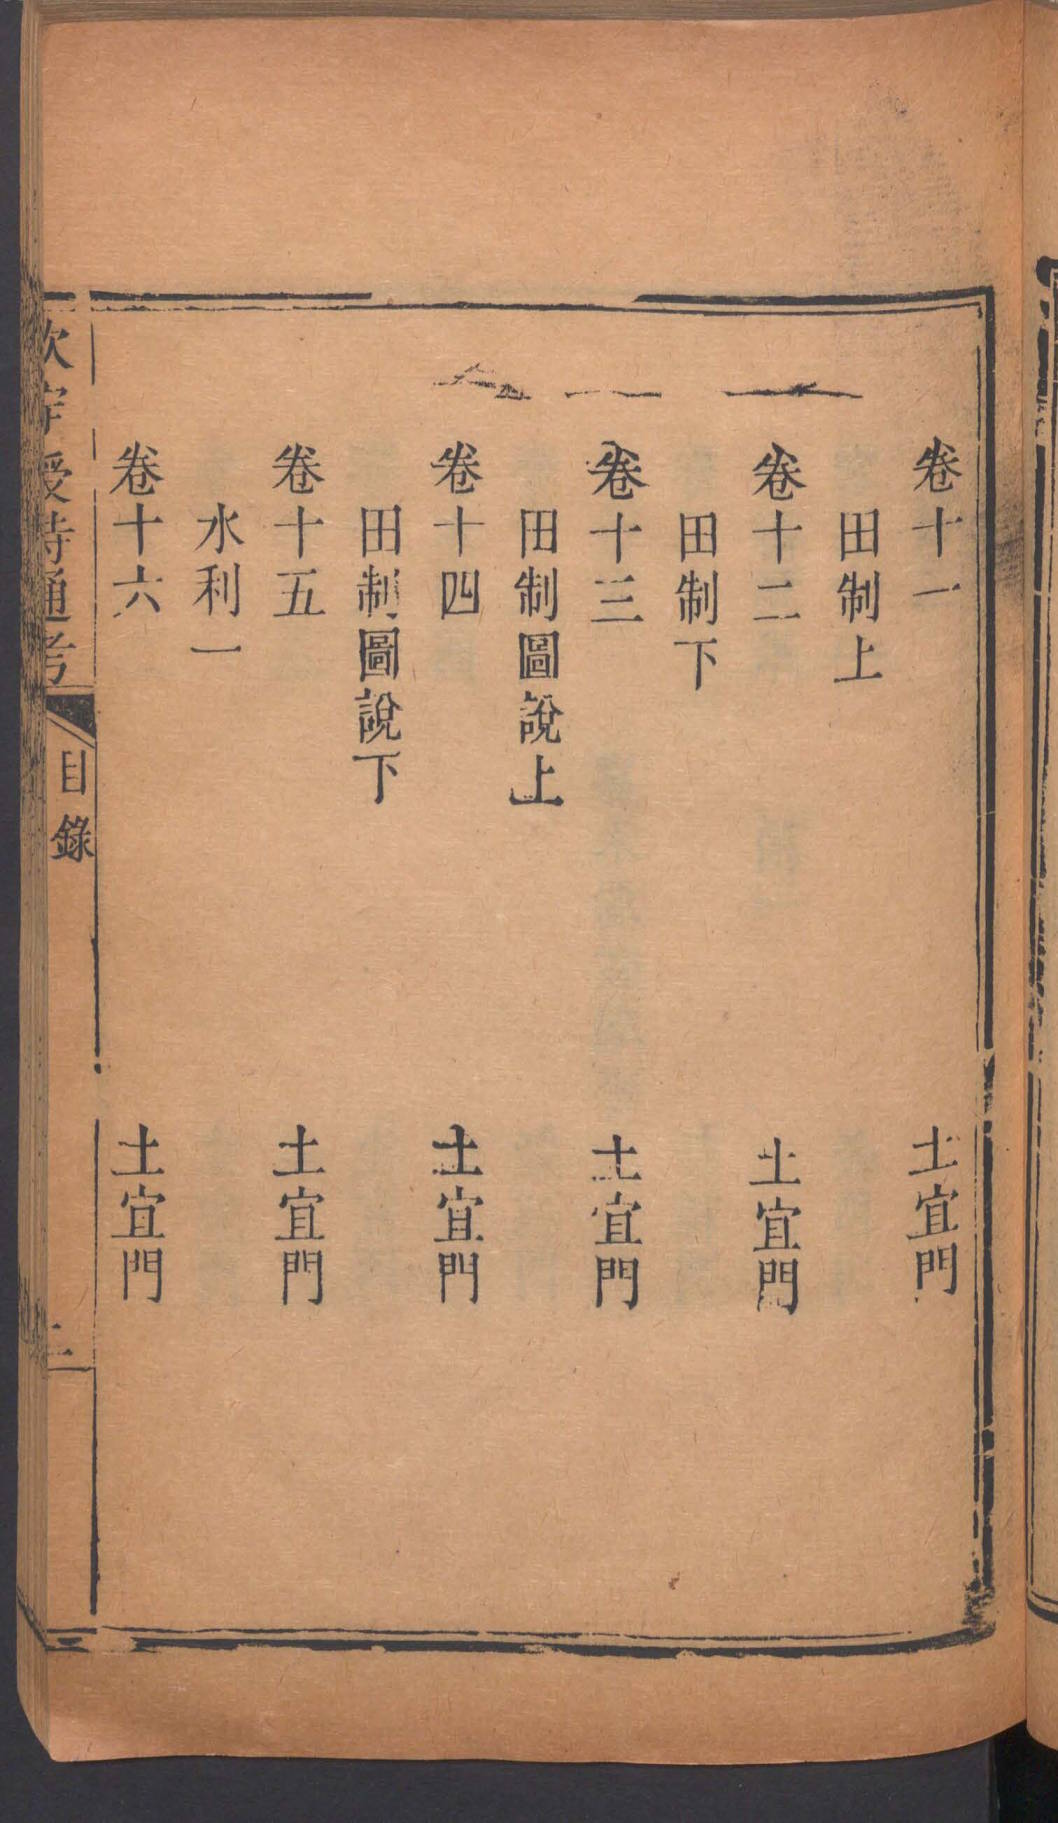 卷十一　土宜門
田制上
卷十二　土宜門
田制下
卷十三　土宜門
田制圖說上
卷十四　土宜門
田制圖說下
卷十五　土宜門
水利一
卷十六　土宜門
欽定授時通考　目錄